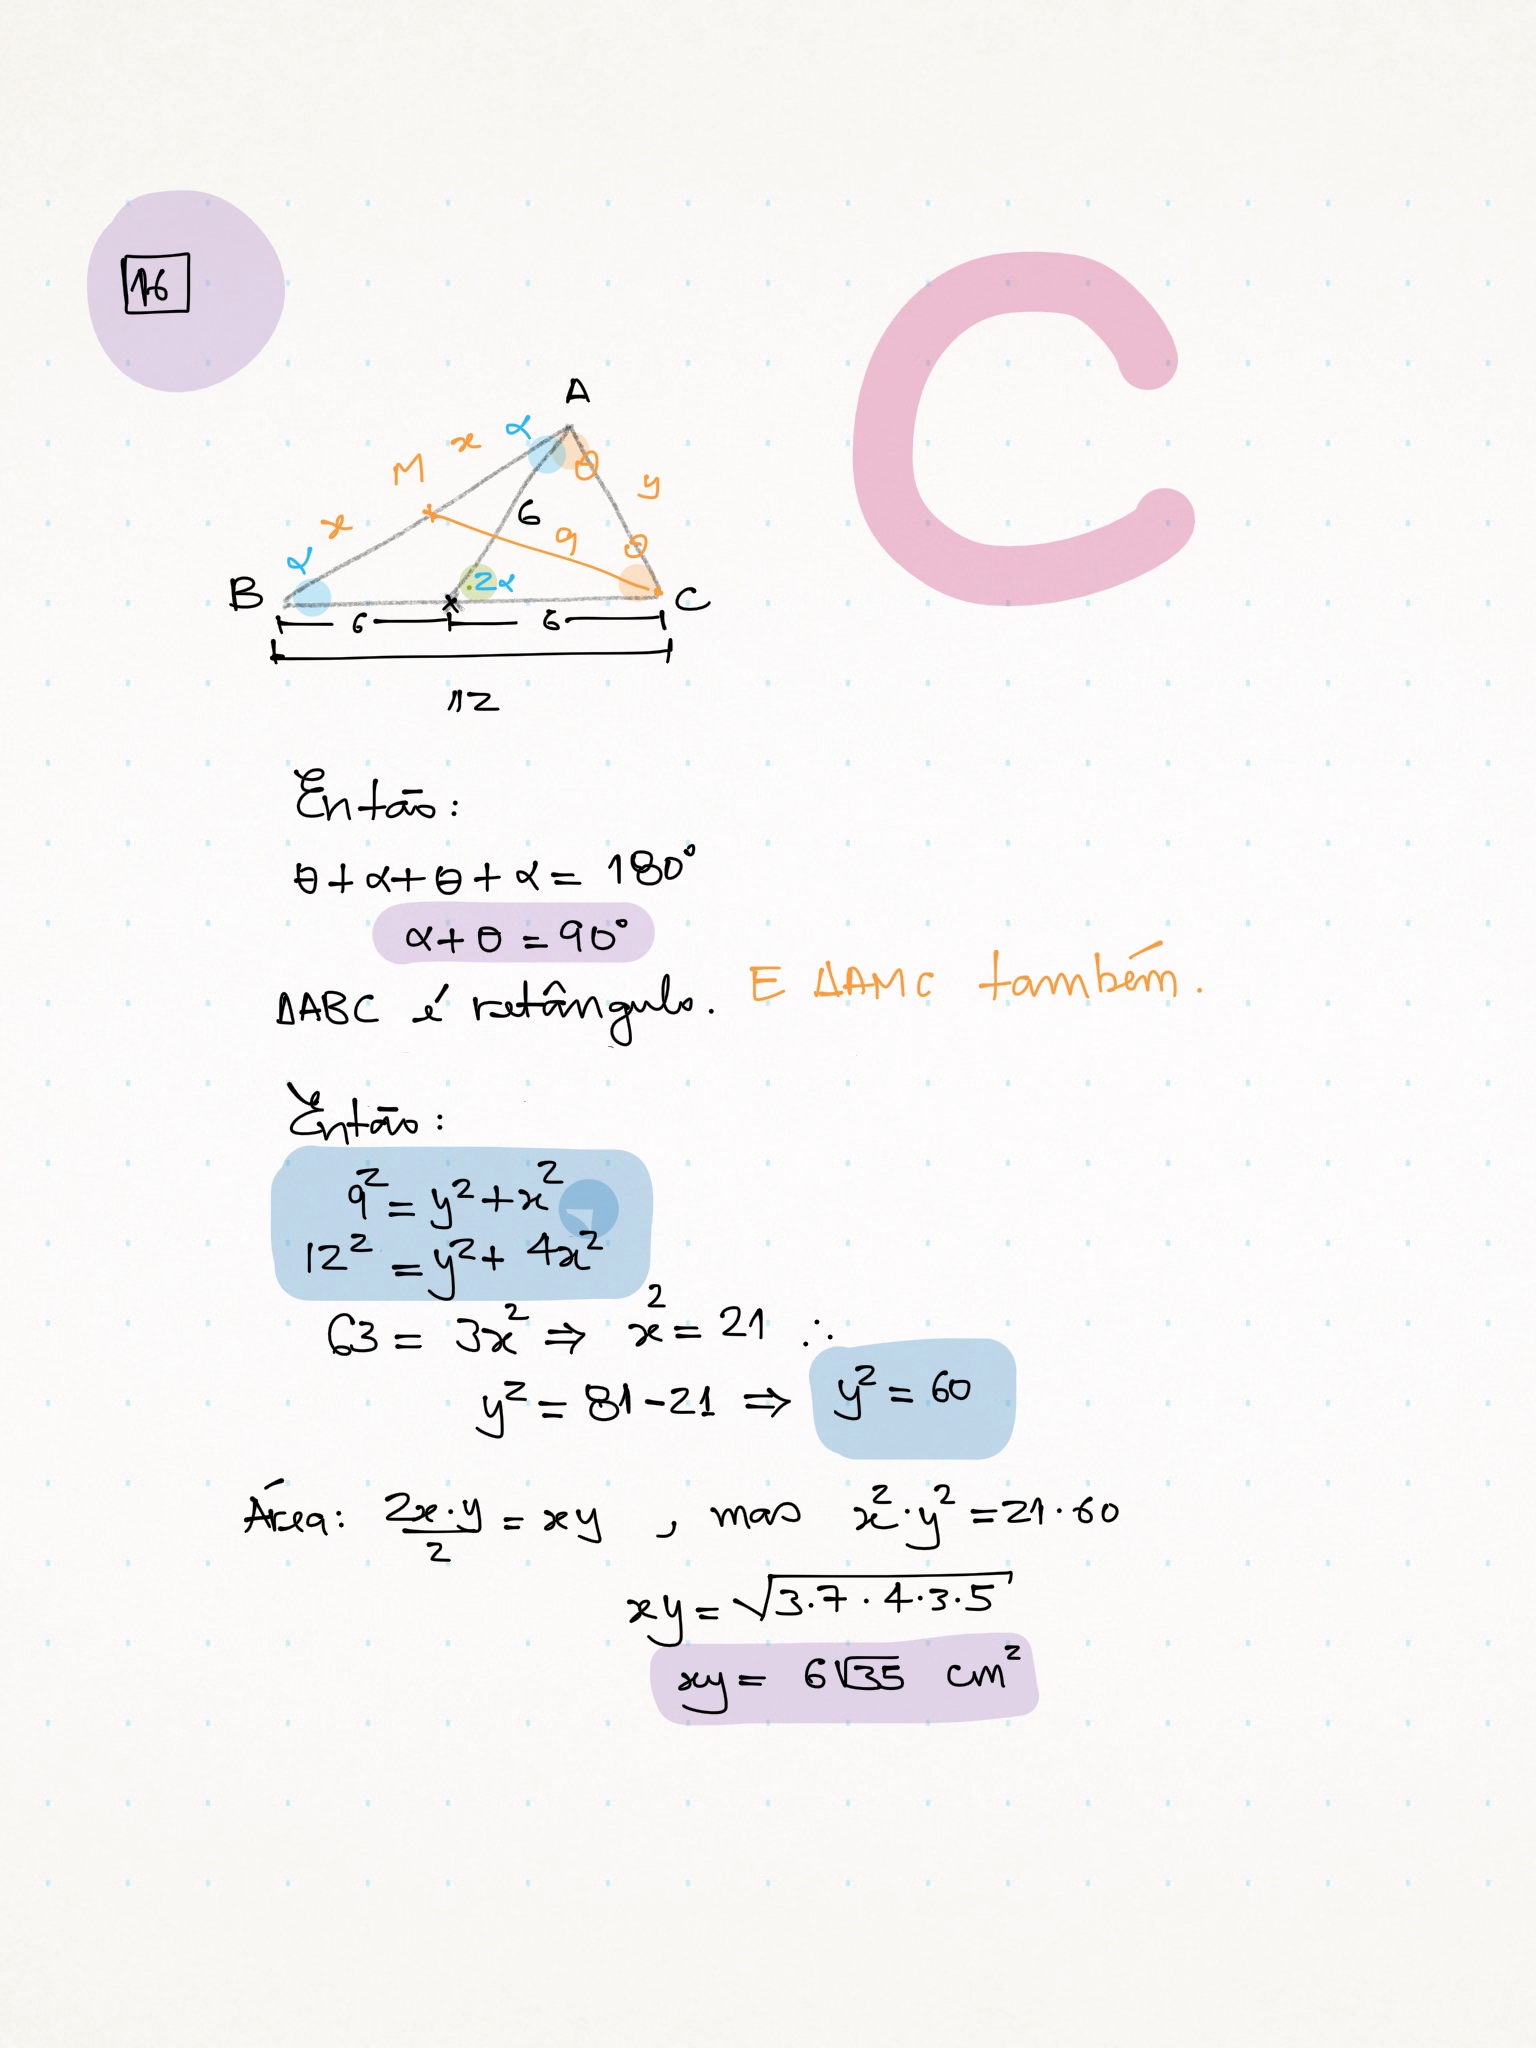 16
C
A
α
x
M
θ
y
x
6
9
θ
α
2α
B
C
6
6
12
Então:
θ+α+θ+α = 180°
α+θ = 90°
ΔABC é retângulo. E ΔAMC também.
Então:
9² = y²+x²
12² = y²+ 4x²
63 = 3x² ⇒ x² = 21 ∴
y² = 81-21 ⇒ y² = 60
Área: 2x·y/2 = xy , mas x²·y² = 21·60
xy = √3.7 · 4·3·5
xy = 6√35 cm²